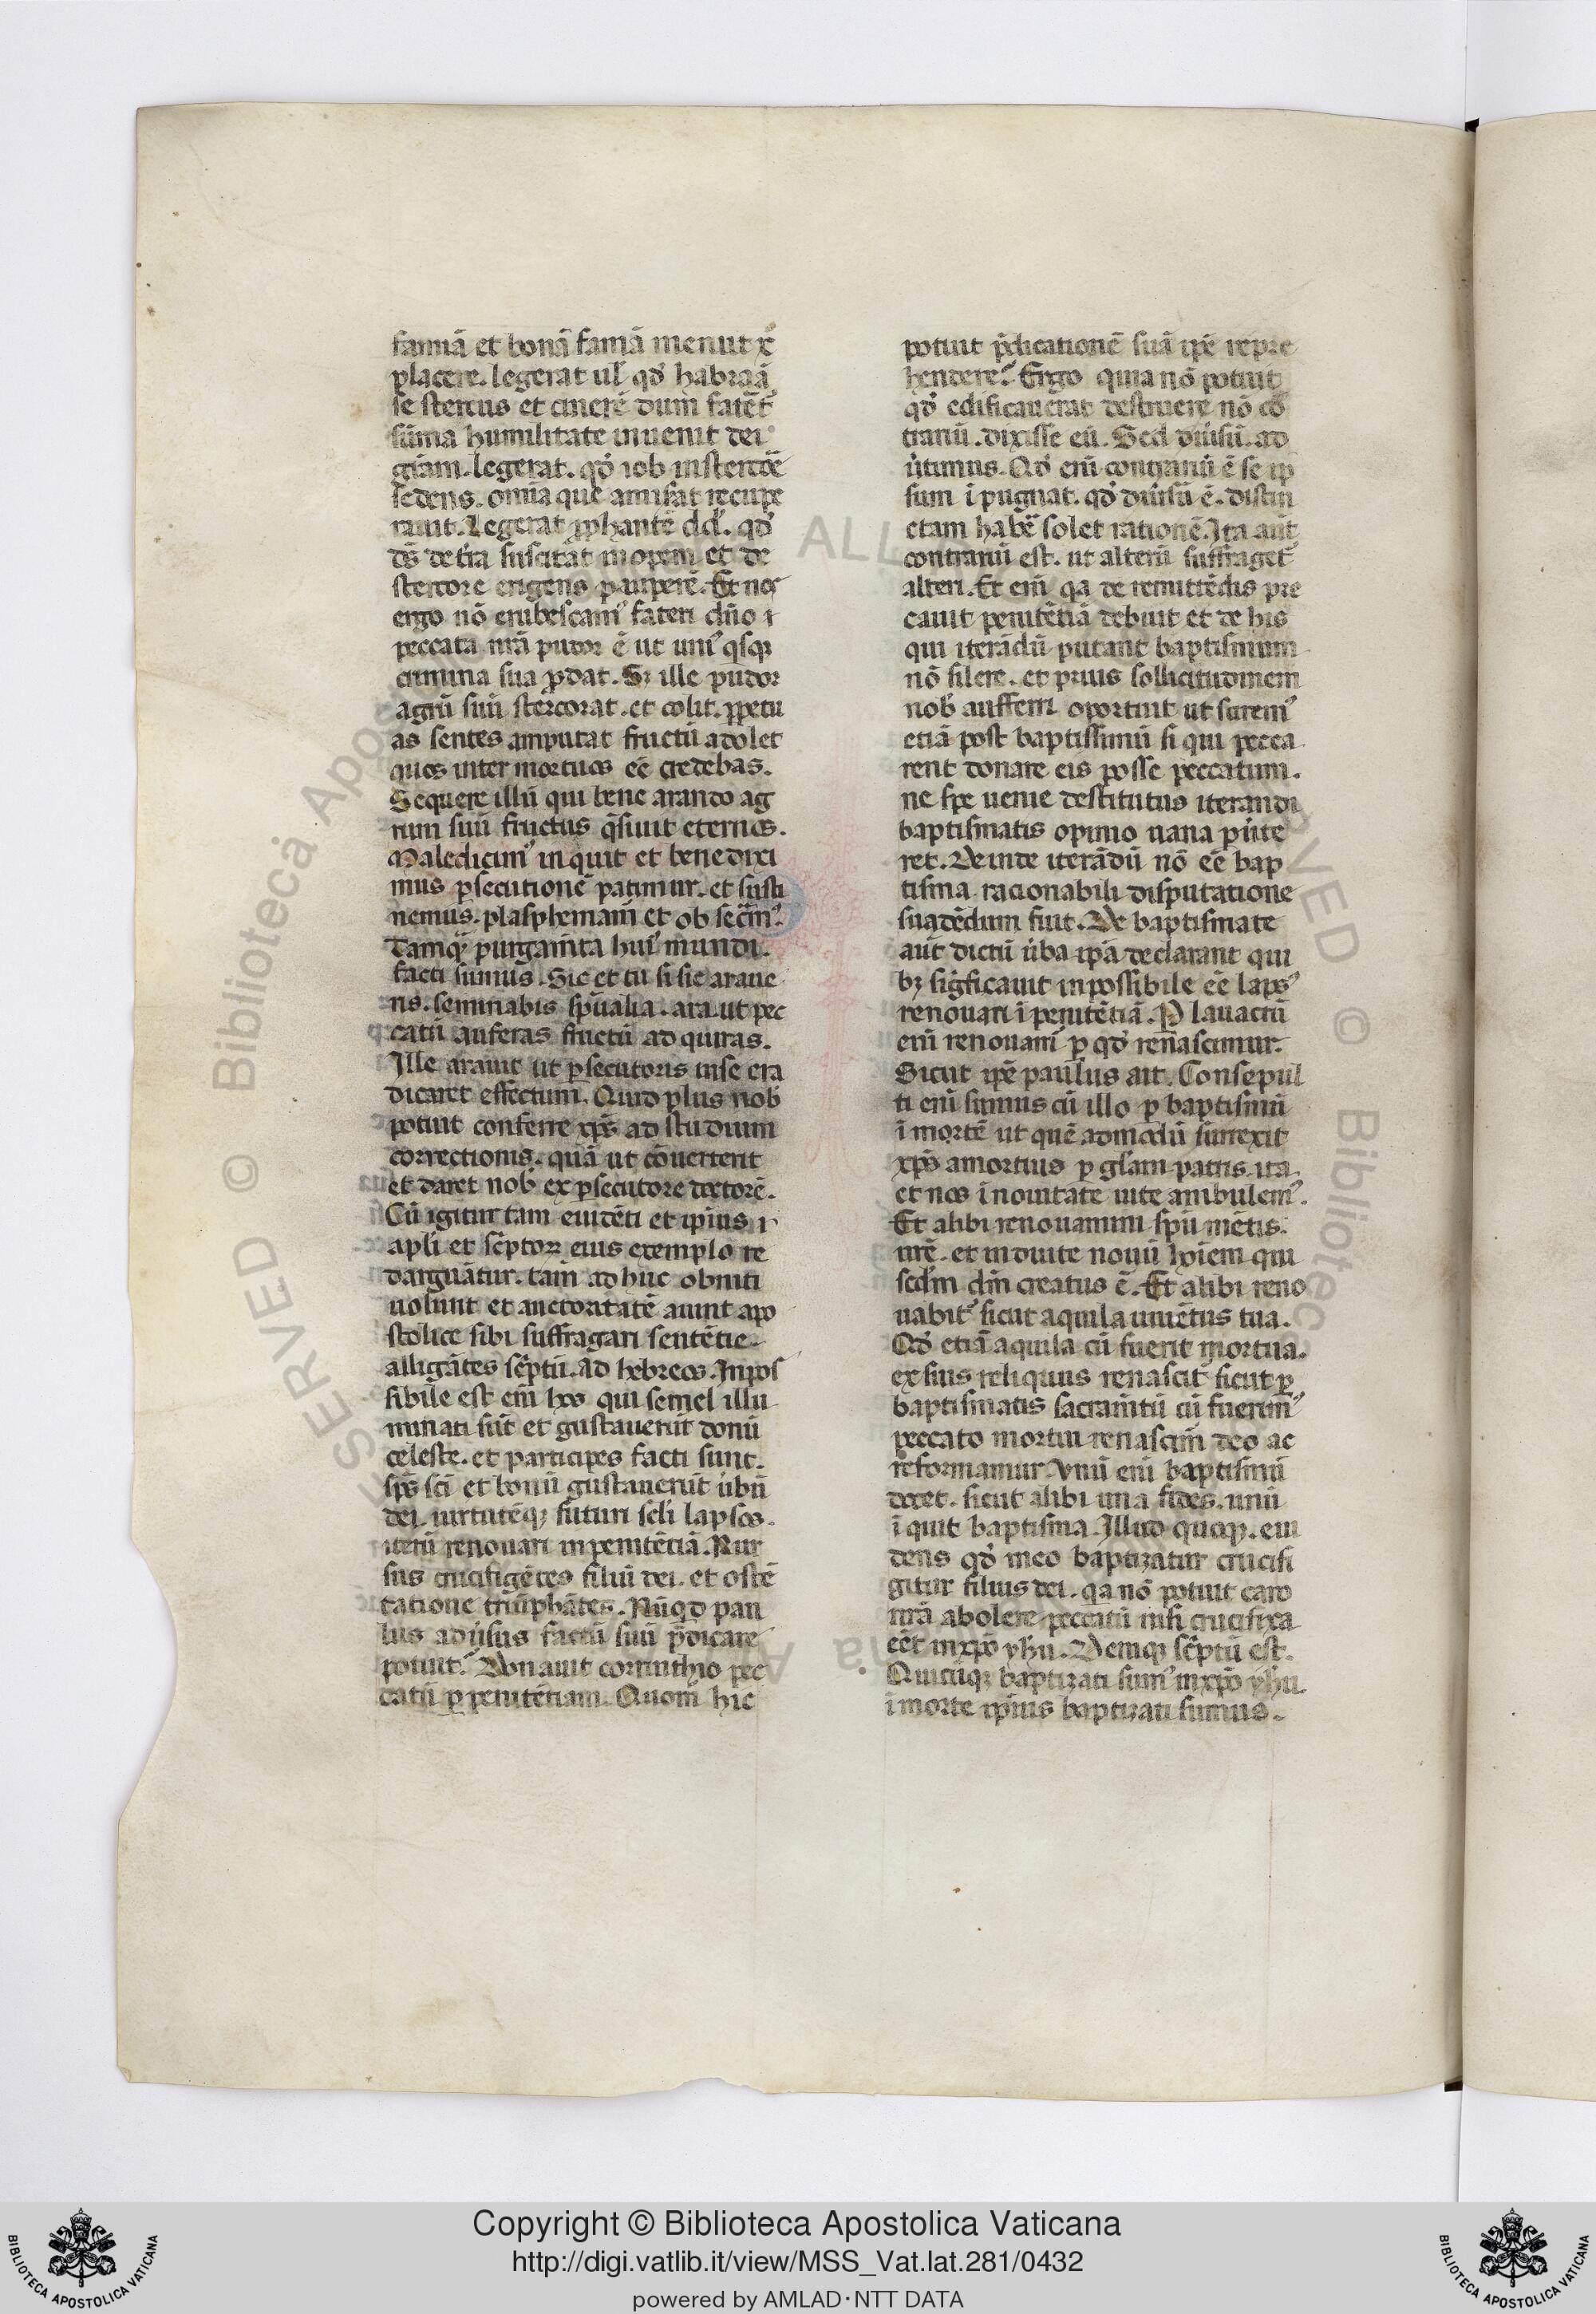 famiā et bonā famā menut x̄
placere. legerat ul̄ qd̓ habraā
se stercus et cinerē dum fatēt᷒
sūma humilitate inuenit dei
gr̄am. legerat. qd̓ iob in stercōē
sedens. om̄ia que amisāt recupe
rauit. Legerat ꝓphantē dd̓. qd̓
ds̄ de t̄ra suscitāt inopem et de
stercore erigens pauperē. Et nos
ergo nō erubescam᷒ fateri dn̄o
peccata nr̄a pudor ē ut uni᷒ qsqꝫ
crimina sua ꝓdat. Sꝫ ille pudor
agrū suū stercorat. et colit. ꝑpetu
as sentes amputat fructū adolet
quos inter mortuos eē̄ credebas.
Sequere illū qui bene arando ag
rum suū fructus q̄siuit eternos.
Maledicim᷒ inquit et benedixi
mus ꝑsecutionē patimur. et susti
nemus. plasphemam̄ et obsec̄m᷒.
Tamqꝫ purgam̄ta hui᷒ mundi.
facti sumus. Sic et tu si sic araue
ris. seminabis sp̄ualia. ara ut pec
catū auferas fructū adquiras.
Ille arauit ut ꝑsecutoris in se era
dicaret effectum. Quid plus nob̓
potuit conferre xp̄s ad studium
correctionis. quā ut cōuerterit
et daret nob̓ ex ꝑsecutore doctorē.
Cū igitur tam euidēti et ip̄ius
apl̄i et sc̄ptoꝝ eius exemplo re
darguātur. tam̄ adhuc obniti
uolunt et auctoritatē aiunt apo
stolice sibi suffragari sentētie
alligātes sc̄ptū. ad hebreos. Inpos
sibile est eni᷒ hos qui semel illu
minati sūt et gustauerūt donū
celeste. et participes facti sunt.
sp̄s sc̄i et bonū gustauerūt ūbū
dei. uirtutēqꝫ futuri sc̄li lapsos.
iterū renouari in penitētiā. Rur
sus crucifigētes filiū dei. et ostē
tatione triūphātes. Nūqd pau
lus aduersus factū suū p̄dicare
potuit. Donauit corinthio pec
catū ꝑ penitētiam. Quom̄ hic
potuit p̄dicationē suā ip̄e repre
hendere. Ergo quia nō potuit
qd̓ edificauerat destruere nō cō
trariū. dixisse eū. Sed diūsū. ad
ūtimus. Qd̓ eni᷒ contrariū ē se ip̄
sum īpugnat. qd̓ diūsū ē. distin
ctam habē solet rationē. Ita aūt
contrariū est. ut alterū suffraget᷒
alteri. Et eni᷒ qa de remittēdis pre
cauit penitētiā debuit et de his
qui iterādū putant baptismum
nō silere. et prius sollicitudinem
nob̓ aufferri oportuit ut sciremꝰ
etiā post baptissimū si qui pecca
rent donare eis posse peccatum.
ne spe uenie destitutus iterandi
baptismatis opinio uana ꝑūte
ret. Deinde iterādū nō eē̄ bap
tisma racionabili disputatione
suadēdum fuit. De baptismate
aūt dictū ūba ip̄a declarant qui
bꝫ sigficauit inpossibile eē̄ lapsꝰ
renouari ī penitētiā. Ꝑ lauacrū
eni᷒ renouari ꝑ qd̓ renascimur.
Sicut ip̄e paulus ait. Consepul
ti eni᷒ sumus cū illo ꝑ baptismū
ī mortē ut quē admodū surrexit
xp̄s a mortuis ꝑ gl̄am patris. ita
et nos ī nouitate uite ambulem᷒.
Et alibi renouamini sp̄u mētis.
nr̄e. et induite nouū hoīem qui
scd̓m dm̄ creatus ē. Et alibi reno
uabit᷒ sicut aquila uiuētus tua.
Qd̓ etiā aquila cū fuerit mortua.
ex suis reliquus renascit᷒ sicut ꝑ
baptismatis sacram̄tū cū fuerim᷒
peccato mortui renascim̄ deo ac
reformamur Vnū eni᷒ baptismū
docet. sicut alibi una fides. unū
īquit baptisma. Illud quoqꝫ. eui
dens qd̓ in eo baptizatur crucifi
gitur filius dei. qa nō potuit caro
nr̄a abolere peccatū nisi crucifixa
eēt in xp̄o yh̄u. Deniqꝫ sc̄ptū est.
Quicūqꝫ baptizati sum᷒ in xp̄o yh̄u
ī morte ip̄ius baptizati sumus.
Copyright © Biblioteca Apostolica Vaticana
http://digi.vatlib.it/view/MSS_Vat.lat.281/0432
powered by AMLAD·NTT DATA